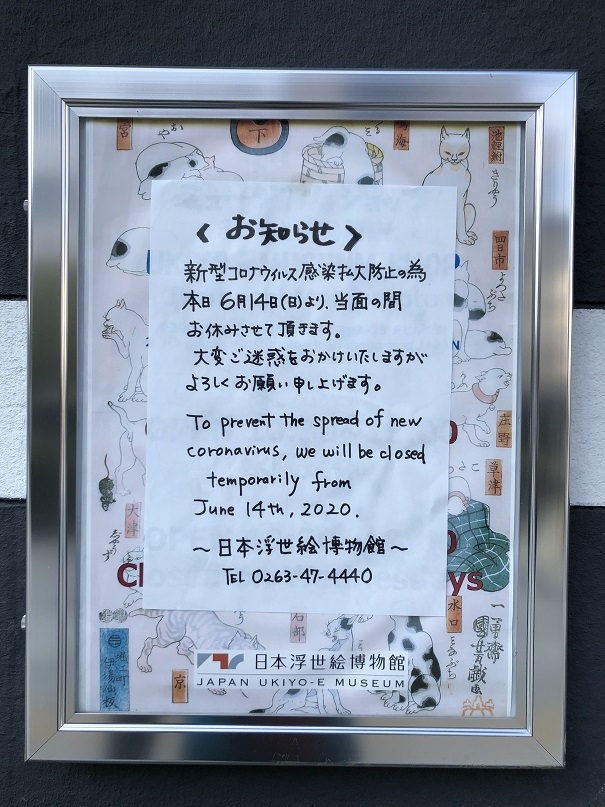 〈 お知らせ 〉
新型コロナウィルス感染拡大防止の為
本日6月14日(日)より、当面の間
お休みさせて頂きます。
大変ご迷惑をおかけいたしますが
よろしくお願い申し上げます。
To prevent the spread of new
coronavirus, we will be closed
temporarily from
June 14th, 2020.
～日本浮世絵博物館～
TEL 0263-47-4440
宮
下
鳴海
池鯉鮒
四日市
庄野
草津
大津
水口
石部
京
日本浮世絵博物館
JAPAN UKIYO-E MUSEUM